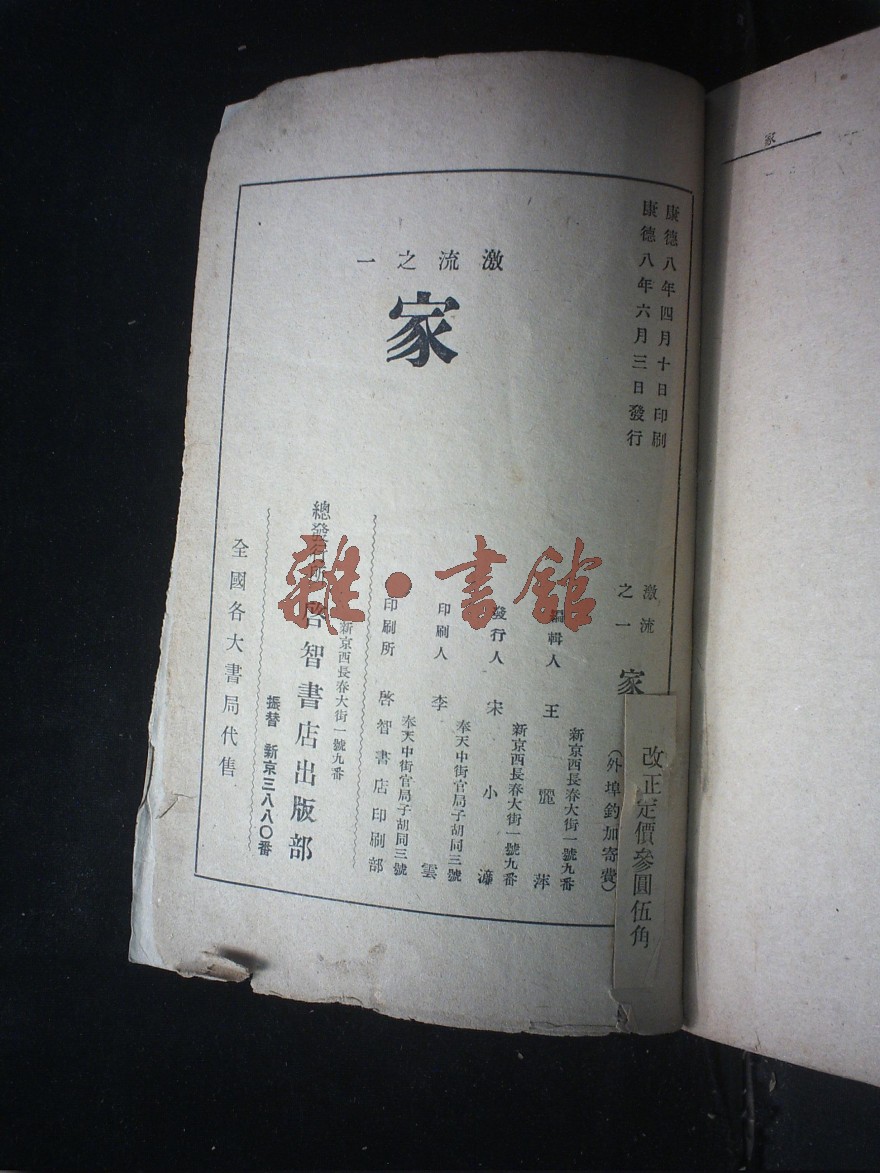 家
康德八年四月十日印刷
康德八年六月三日發行
激流之一
家
激流之一 家
改正定價參圓伍角
(外埠酌加寄費)
新京西長春大街一號九番
編輯人 王麗萍
新京西長春大街一號九番
發行人 宋小濂
奉天中街官局子胡同三號
印刷人 李雲
奉天中街官局子胡同三號
印刷所 啓智書店印刷部
新京西長春大街一號九番
總發行所 啓智書店出版部
振替 新京三八八〇番
全國各大書局代售
雜·書館